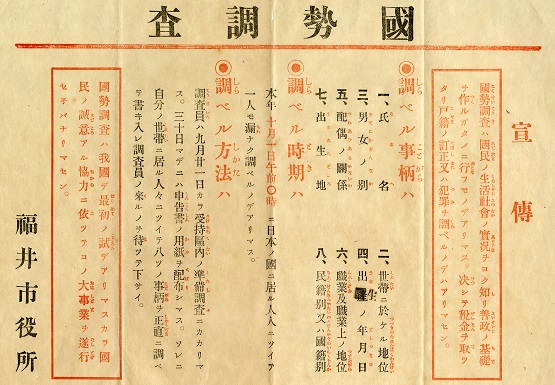 國勢調査
宣傳
國勢調査ハ國民ノ生活社會ノ實况ヲヨク知リ善政ノ基礎
ヲ作ルタメニ行フモノデアリマス、決シテ税金ヲ取ッ
タリ戸籍ノ訂正又ハ犯罪ヲ調ベルノデハアリマセン。
◉調ベル事柄ハ
一、氏名 二、世帶ニ於ケル地位
三、男女ノ別 四、出生ノ年月日
五、配偶ノ關係 六、職業及職業上ノ地位
七、出生地 八、民籍別又ハ國籍別
◉調ベル時期ハ
本年十月一日午前〇時ニ日本ノ國ニ居ル人人ニツイテ
一人モ漏ナク調ベルノデアリマス。
◉調ベル方法ハ
調査員ハ九月廿一日カラ受持區内ノ準備調査ニカカリマ
ス。三十日マデニハ申告書ノ用紙ヲ配布シマスカラ。ソレニ
自分ノ世帶ニ居ル人々ニツイテ八ツノ事柄ヲ正直ニ調ベ
テ書キ入レ調査員ノ來ルノヲ待ツテ下サイ。
國勢調査ハ我國デ最初ノ試デアリマスカラ國
民ノ誠意アル協力ニ依ツテコノ大事業ヲ遂行
セテバナリマセン。
福井市役所